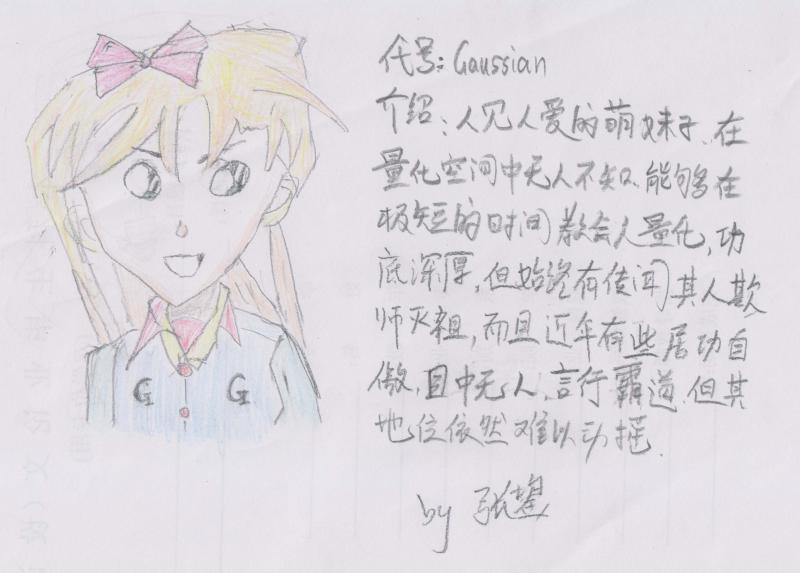 代号:Gaussian
介绍:人见人爱的萌妹子.在
量化空间中无人不知.能够在
极短的时间教会人量化,功
底深厚,但始终有传闻其人欺
师灭祖,而且近年有些居功自
傲,目中无人,言行霸道.但其
地位依然难以动摇.
by 张
G G